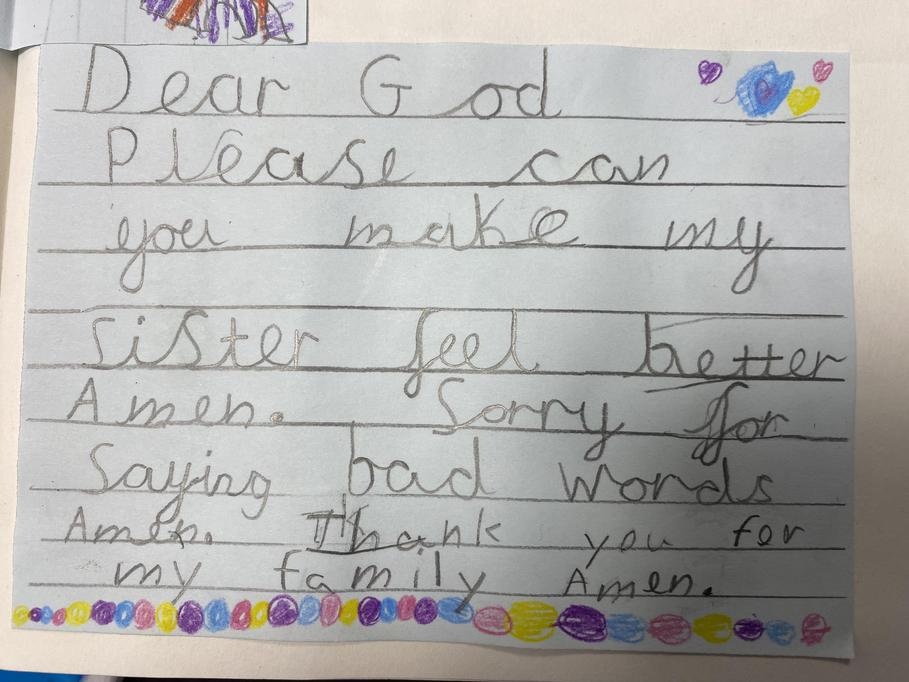 Dear God
Please can
you make my
sister feel better
Amen. Sorry for
Saying bad words
Amen. Thank you for
my family Amen.